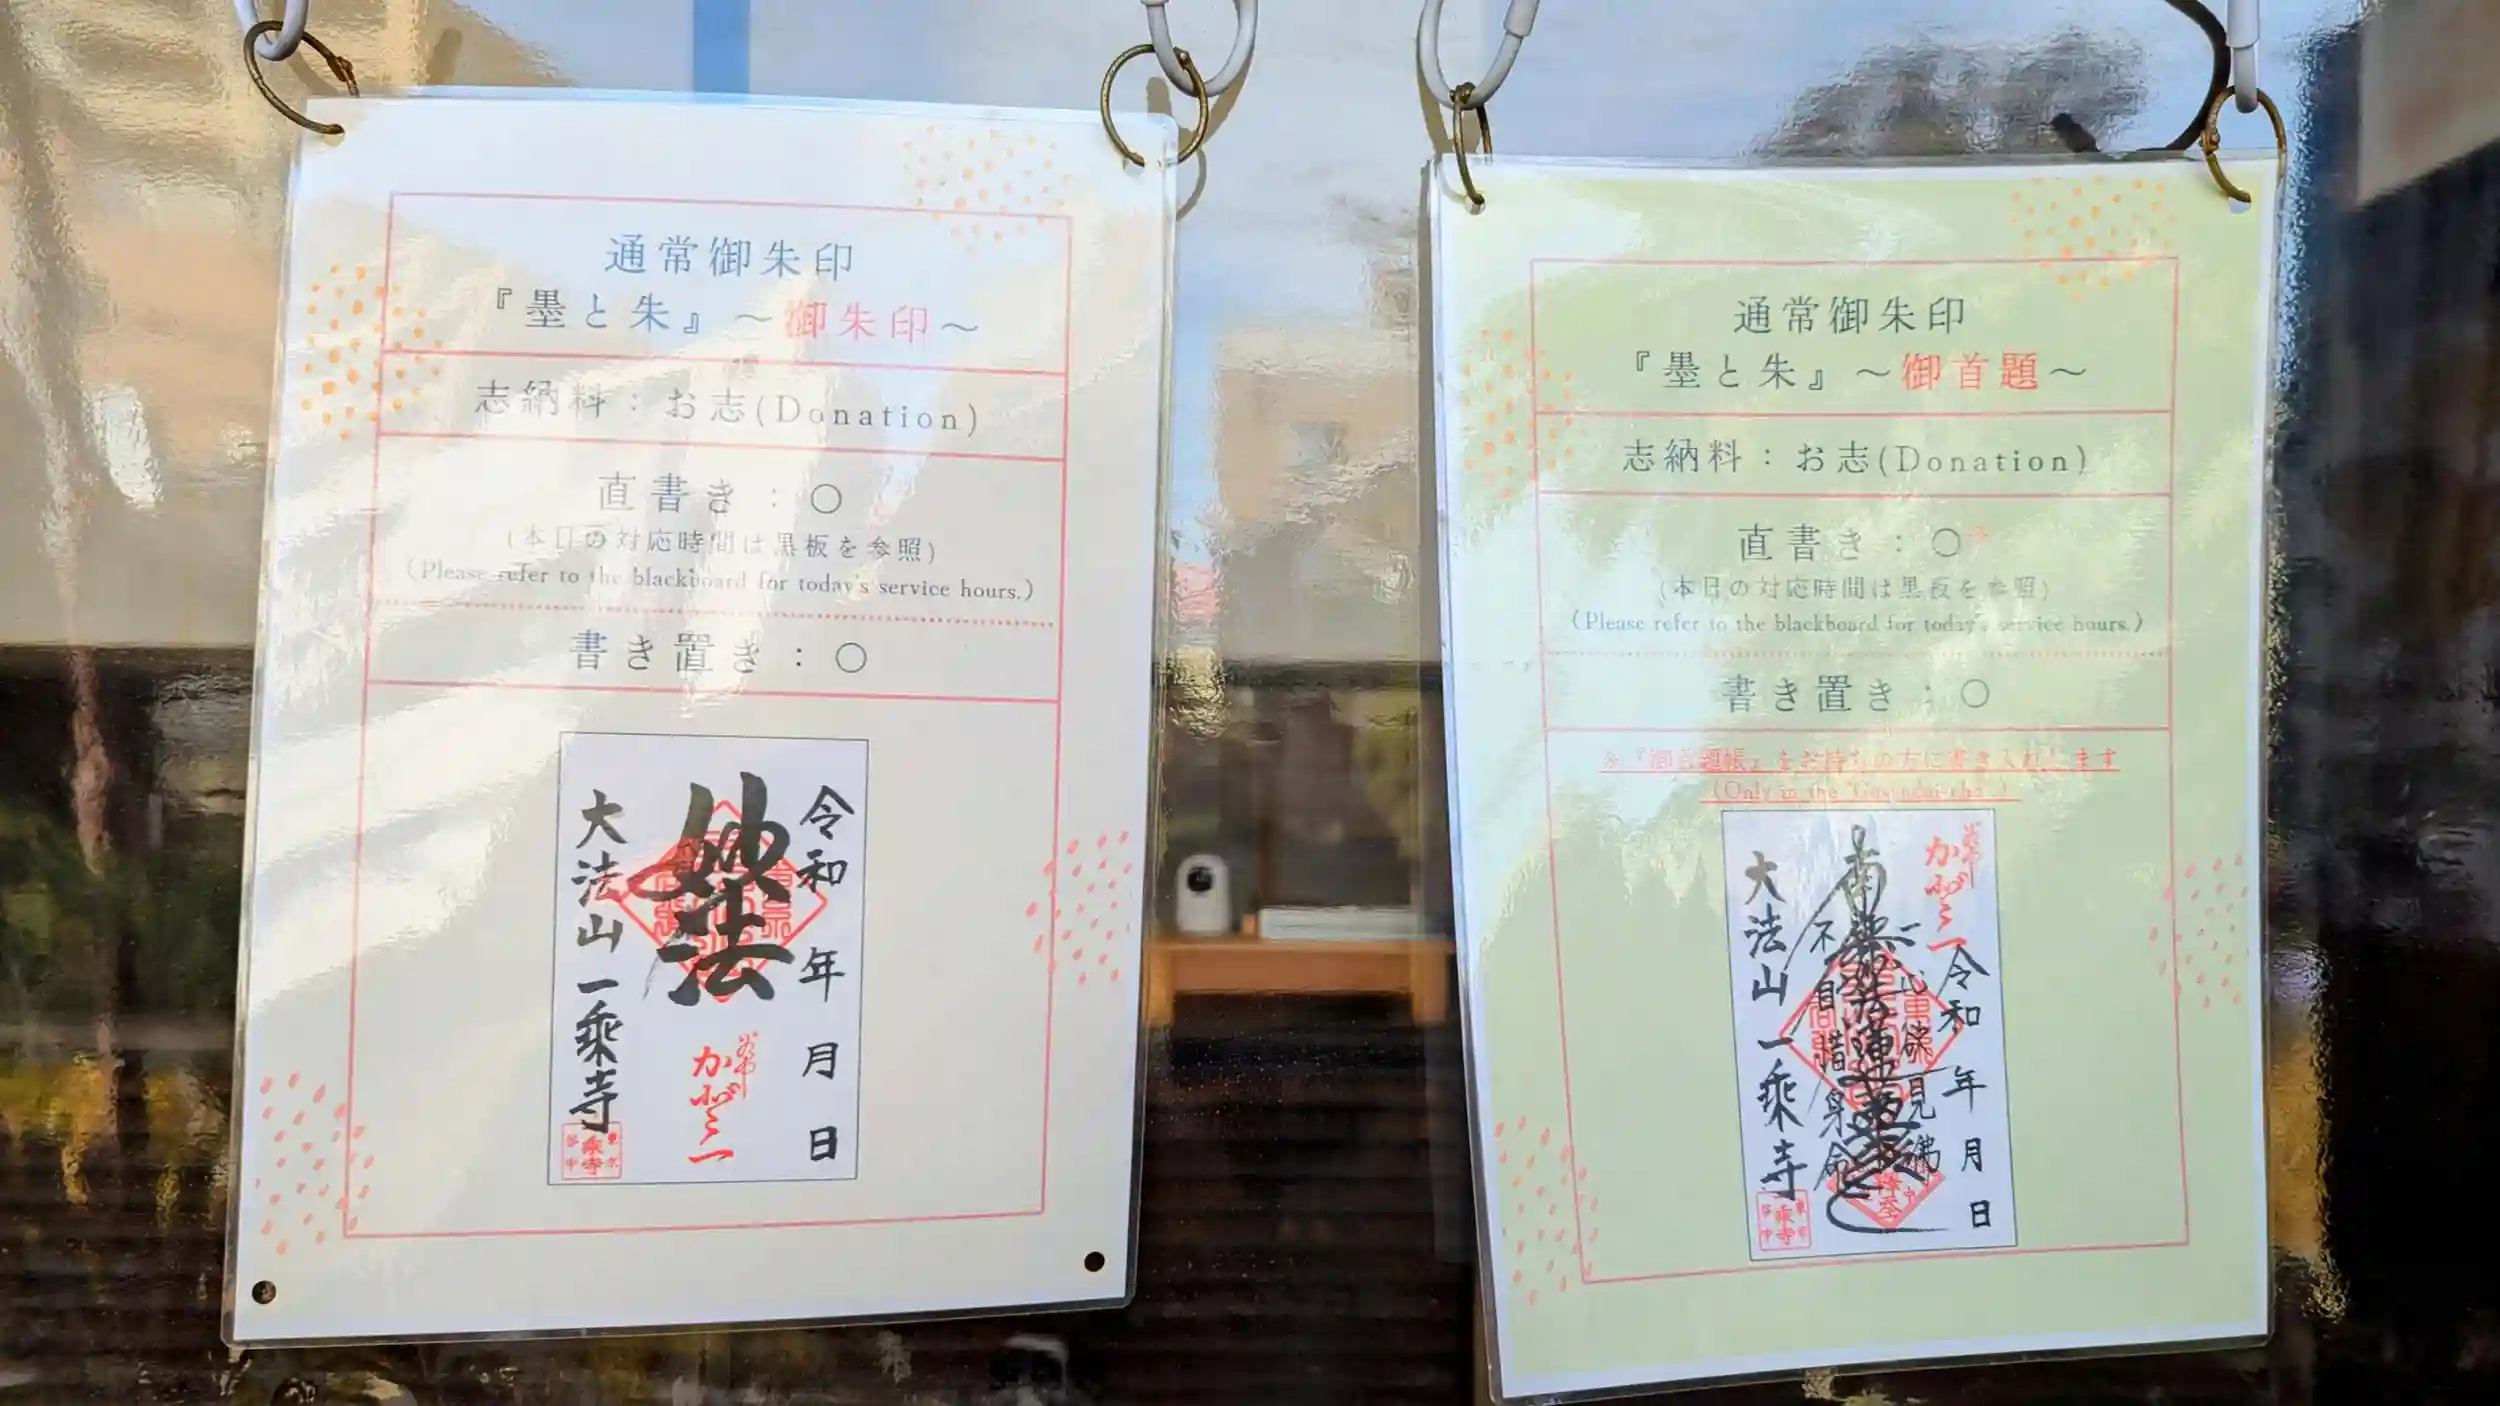 通常御朱印
『墨と朱』～御朱印～
志納料：お志(Donation)
直書き：〇
(本日の対応時間は黒板を参照)
(Please refer to the blackboard for today's service hours.)
書き置き：〇
令和 年 月 日
妙法
かぎろ一
大法山一乘寺
通常御朱印
『墨と朱』～御首題～
志納料：お志(Donation)
直書き：〇
(本日の対応時間は黒板を参照)
(Please refer to the blackboard for today's service hours.)
書き置き：〇
※『御首題帳』をお持ちの方に書き入れします
(Only in the "Gosyudai-cho".)
令和 年 月 日
一心欲見佛
南無妙法蓮華経
不自惜身命
大法山一乘寺